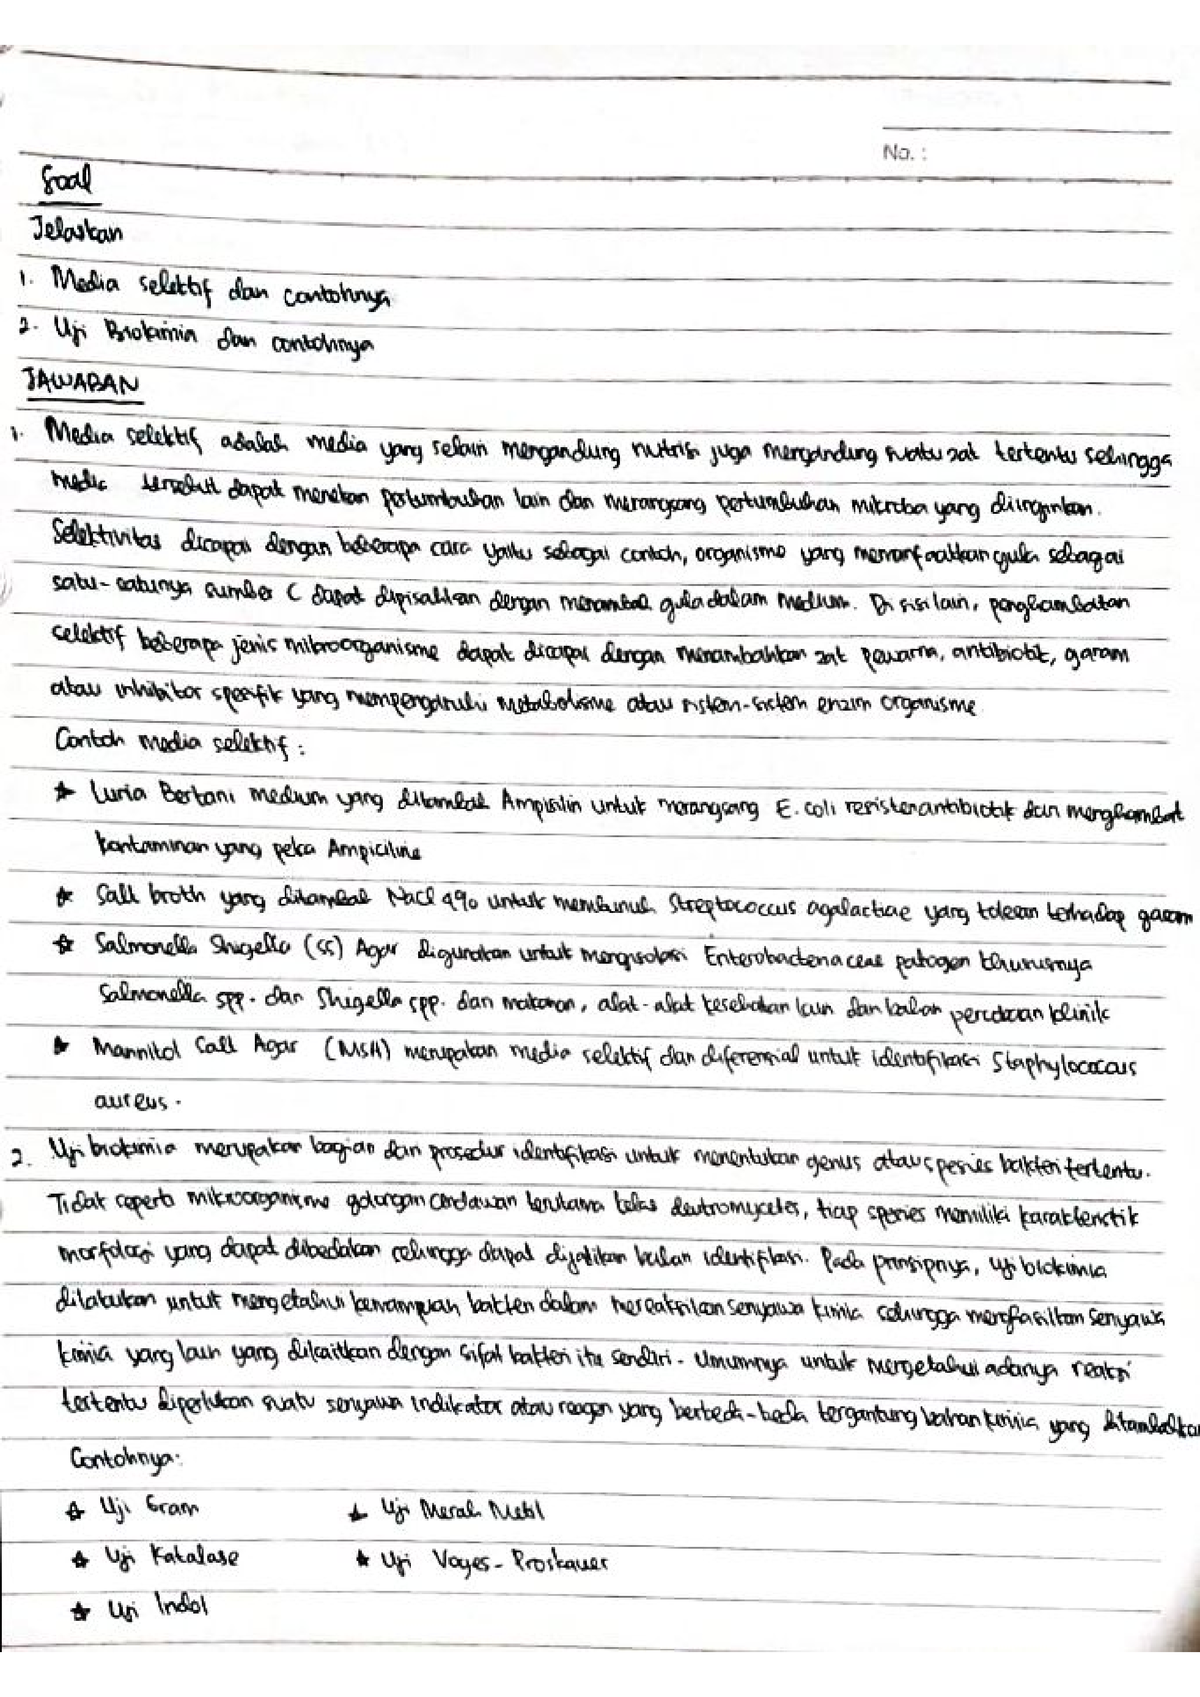 No. :
Soal
Jelaskan
1. Media selektif dan contohnya
2. Uji Biokimia dan contohnya
JAWABAN
1. Media selektif adalah media yang selain mengandung nutrisi juga mengandung suatu zat tertentu sehingga
media tersebut dapat menekan pertumbuhan lain dan merangsang pertumbuhan mikroba yang diinginkan.
Selektivitas dicapai dengan beberapa cara yaitu sebagai contoh, organisme yang memanfaatkan gula sebagai
satu-satunya sumber C dapat dipisahkan dengan menambah gula dalam medium. Di sisi lain, penghambatan
selektif beberapa jenis mikroorganisme dapat dicapai dengan menambahkan zat pewarna, antibiotik, garam
atau inhibitor spesifik yang mempengaruhi metabolisme atau sistem-sistem enzim organisme
Contoh media selektif :
★ Luria Bertani medium yang ditambah Ampisilin untuk merangsang E. coli resisten antibiotik dan menghambat
kontaminan yang peka Ampiciline
★ Salt broth yang ditambah NaCl 4% untuk membunuh Streptococcus agalactiae yang toleran terhadap garam
★ Salmonella Shigella (SS) Agar digunakan untuk mengisolasi Enterobacteriaceae patogen khususnya
Salmonella spp. dan Shigella spp. dari makanan, alat-alat kesehatan lain dan bahan percobaan klinik
★ Mannitol Salt Agar (MSA) merupakan media selektif dan diferensial untuk identifikasi Staphylococcus
aureus.
2. Uji biokimia merupakan bagian dari prosedur identifikasi untuk menentukan genus atau spesies bakteri tertentu.
Tidak seperti mikroorganisme golongan cendawan terutama kelas deutromycetes, tiap spesies memiliki karakteristik
morfologi yang dapat dibedakan sehingga dapat dijadikan bahan identifikasi. Pada prinsipnya, uji biokimia
dilakukan untuk mengetahui kemampuan bakteri dalam mereaksikan senyawa kimia sehingga menghasilkan senyawa
kimia yang lain yang dikaitkan dengan sifat bakteri itu sendiri. Umumnya untuk mengetahui adanya reaksi
tertentu diperlukan suatu senyawa indikator atau reagen yang berbeda-beda tergantung bahan kimia yang ditambahkan
Contohnya:
★ Uji Gram ★ Uji Merah Metil
★ Uji Katalase ★ Uji Voges-Proskauer
★ Uji Indol